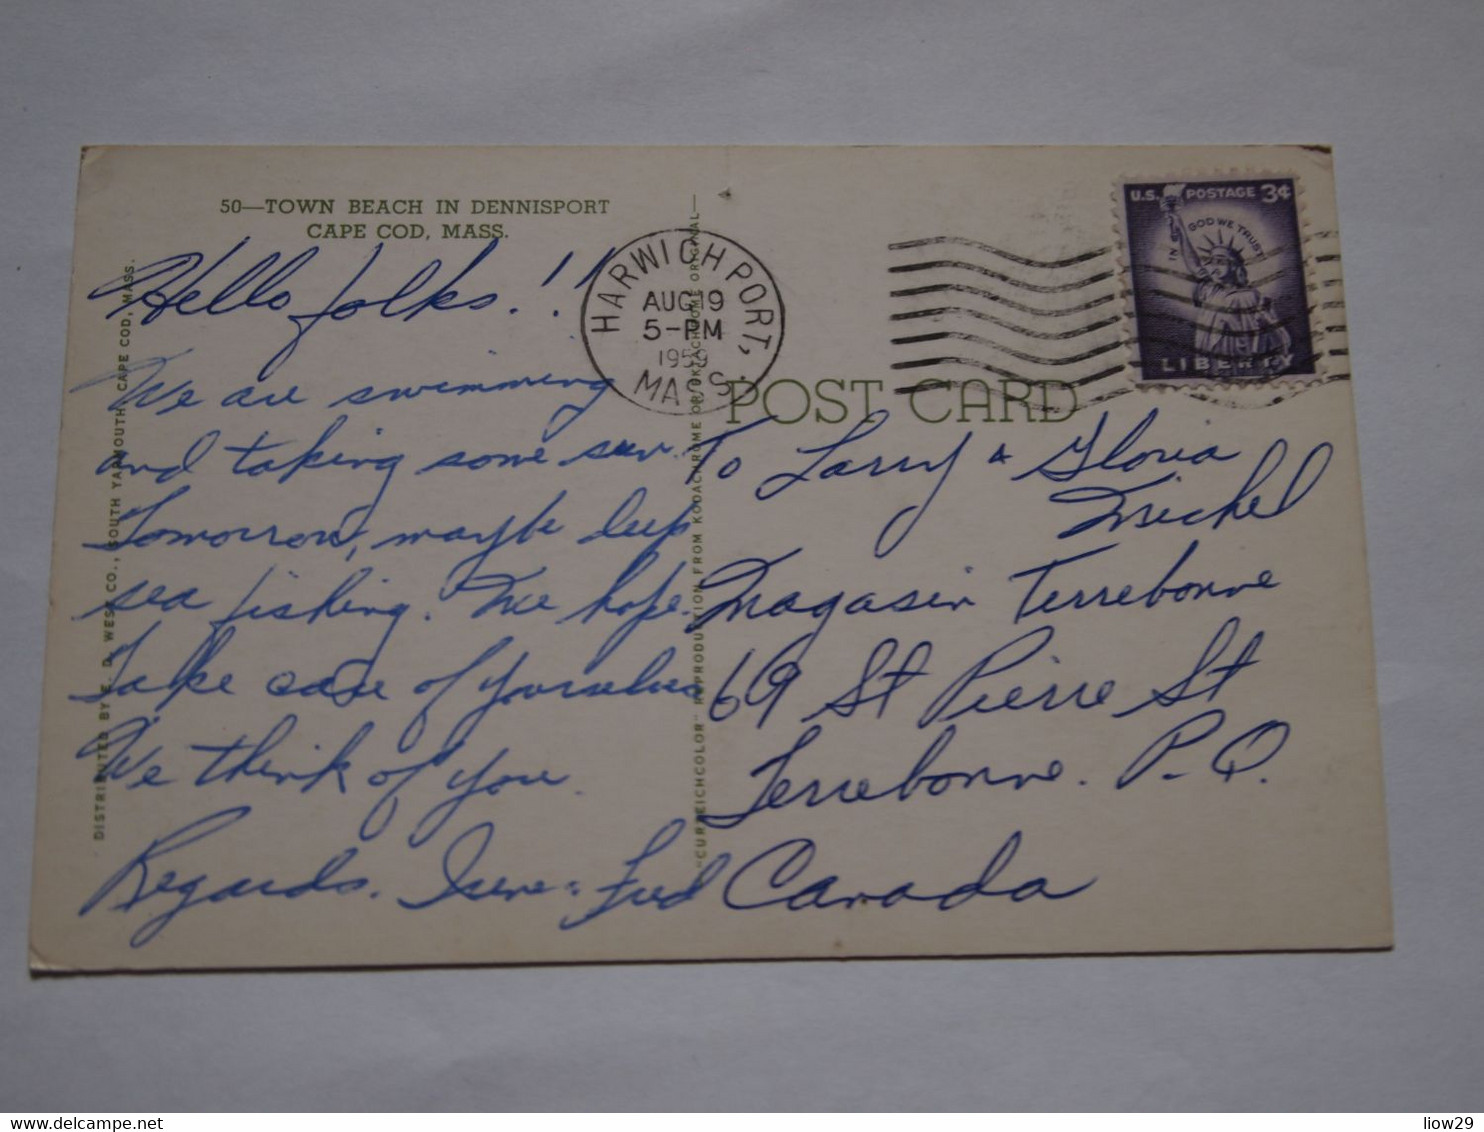 50—TOWN BEACH IN DENNISPORT
CAPE COD, MASS.
Hello folks.!!
We are swimming
and taking some sun.
Tomorrow, maybe deep
sea fishing. We hope.
Take care of yourselves
We think of you.
Regards. Irene & Fred
DISTRIBUTED BY E. D. WEST CO., SOUTH YARMOUTH, CAPE COD, MASS.
"CURTEICHCOLOR" REPRODUCTION FROM KODACHROME OR EKTACHROME ORIGINAL
HARWICH PORT,
AUG 19
5-PM
1959
MASS.
U.S. POSTAGE 3¢
IN GOD WE TRUST
LIBERTY
POST CARD
To Larry & Gloria
Michel
Magasin Terrebonne
69 St Pierre St
Terrebonne. P.Q.
Canada
liow29